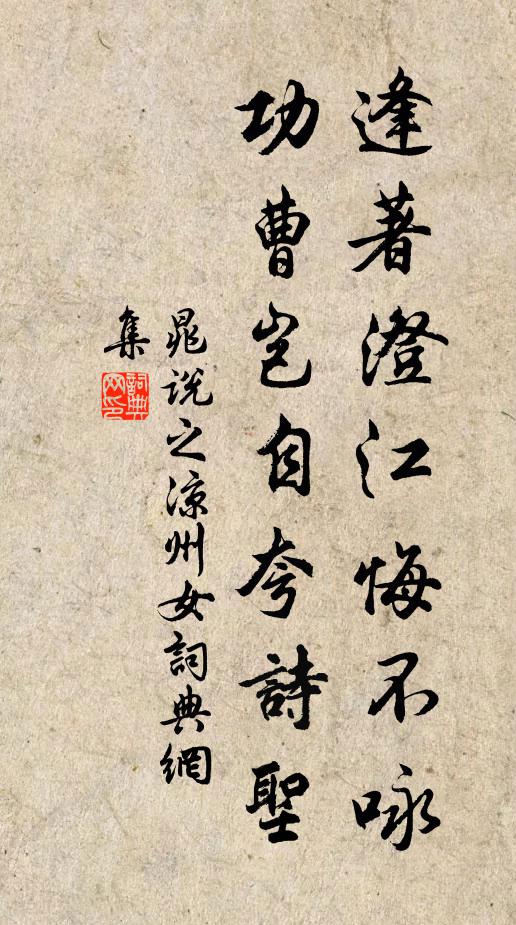 逢著澄江悔不咏
功曹岂自夸詩聖
晁说之凉州女詞典網
集
詞典
网印